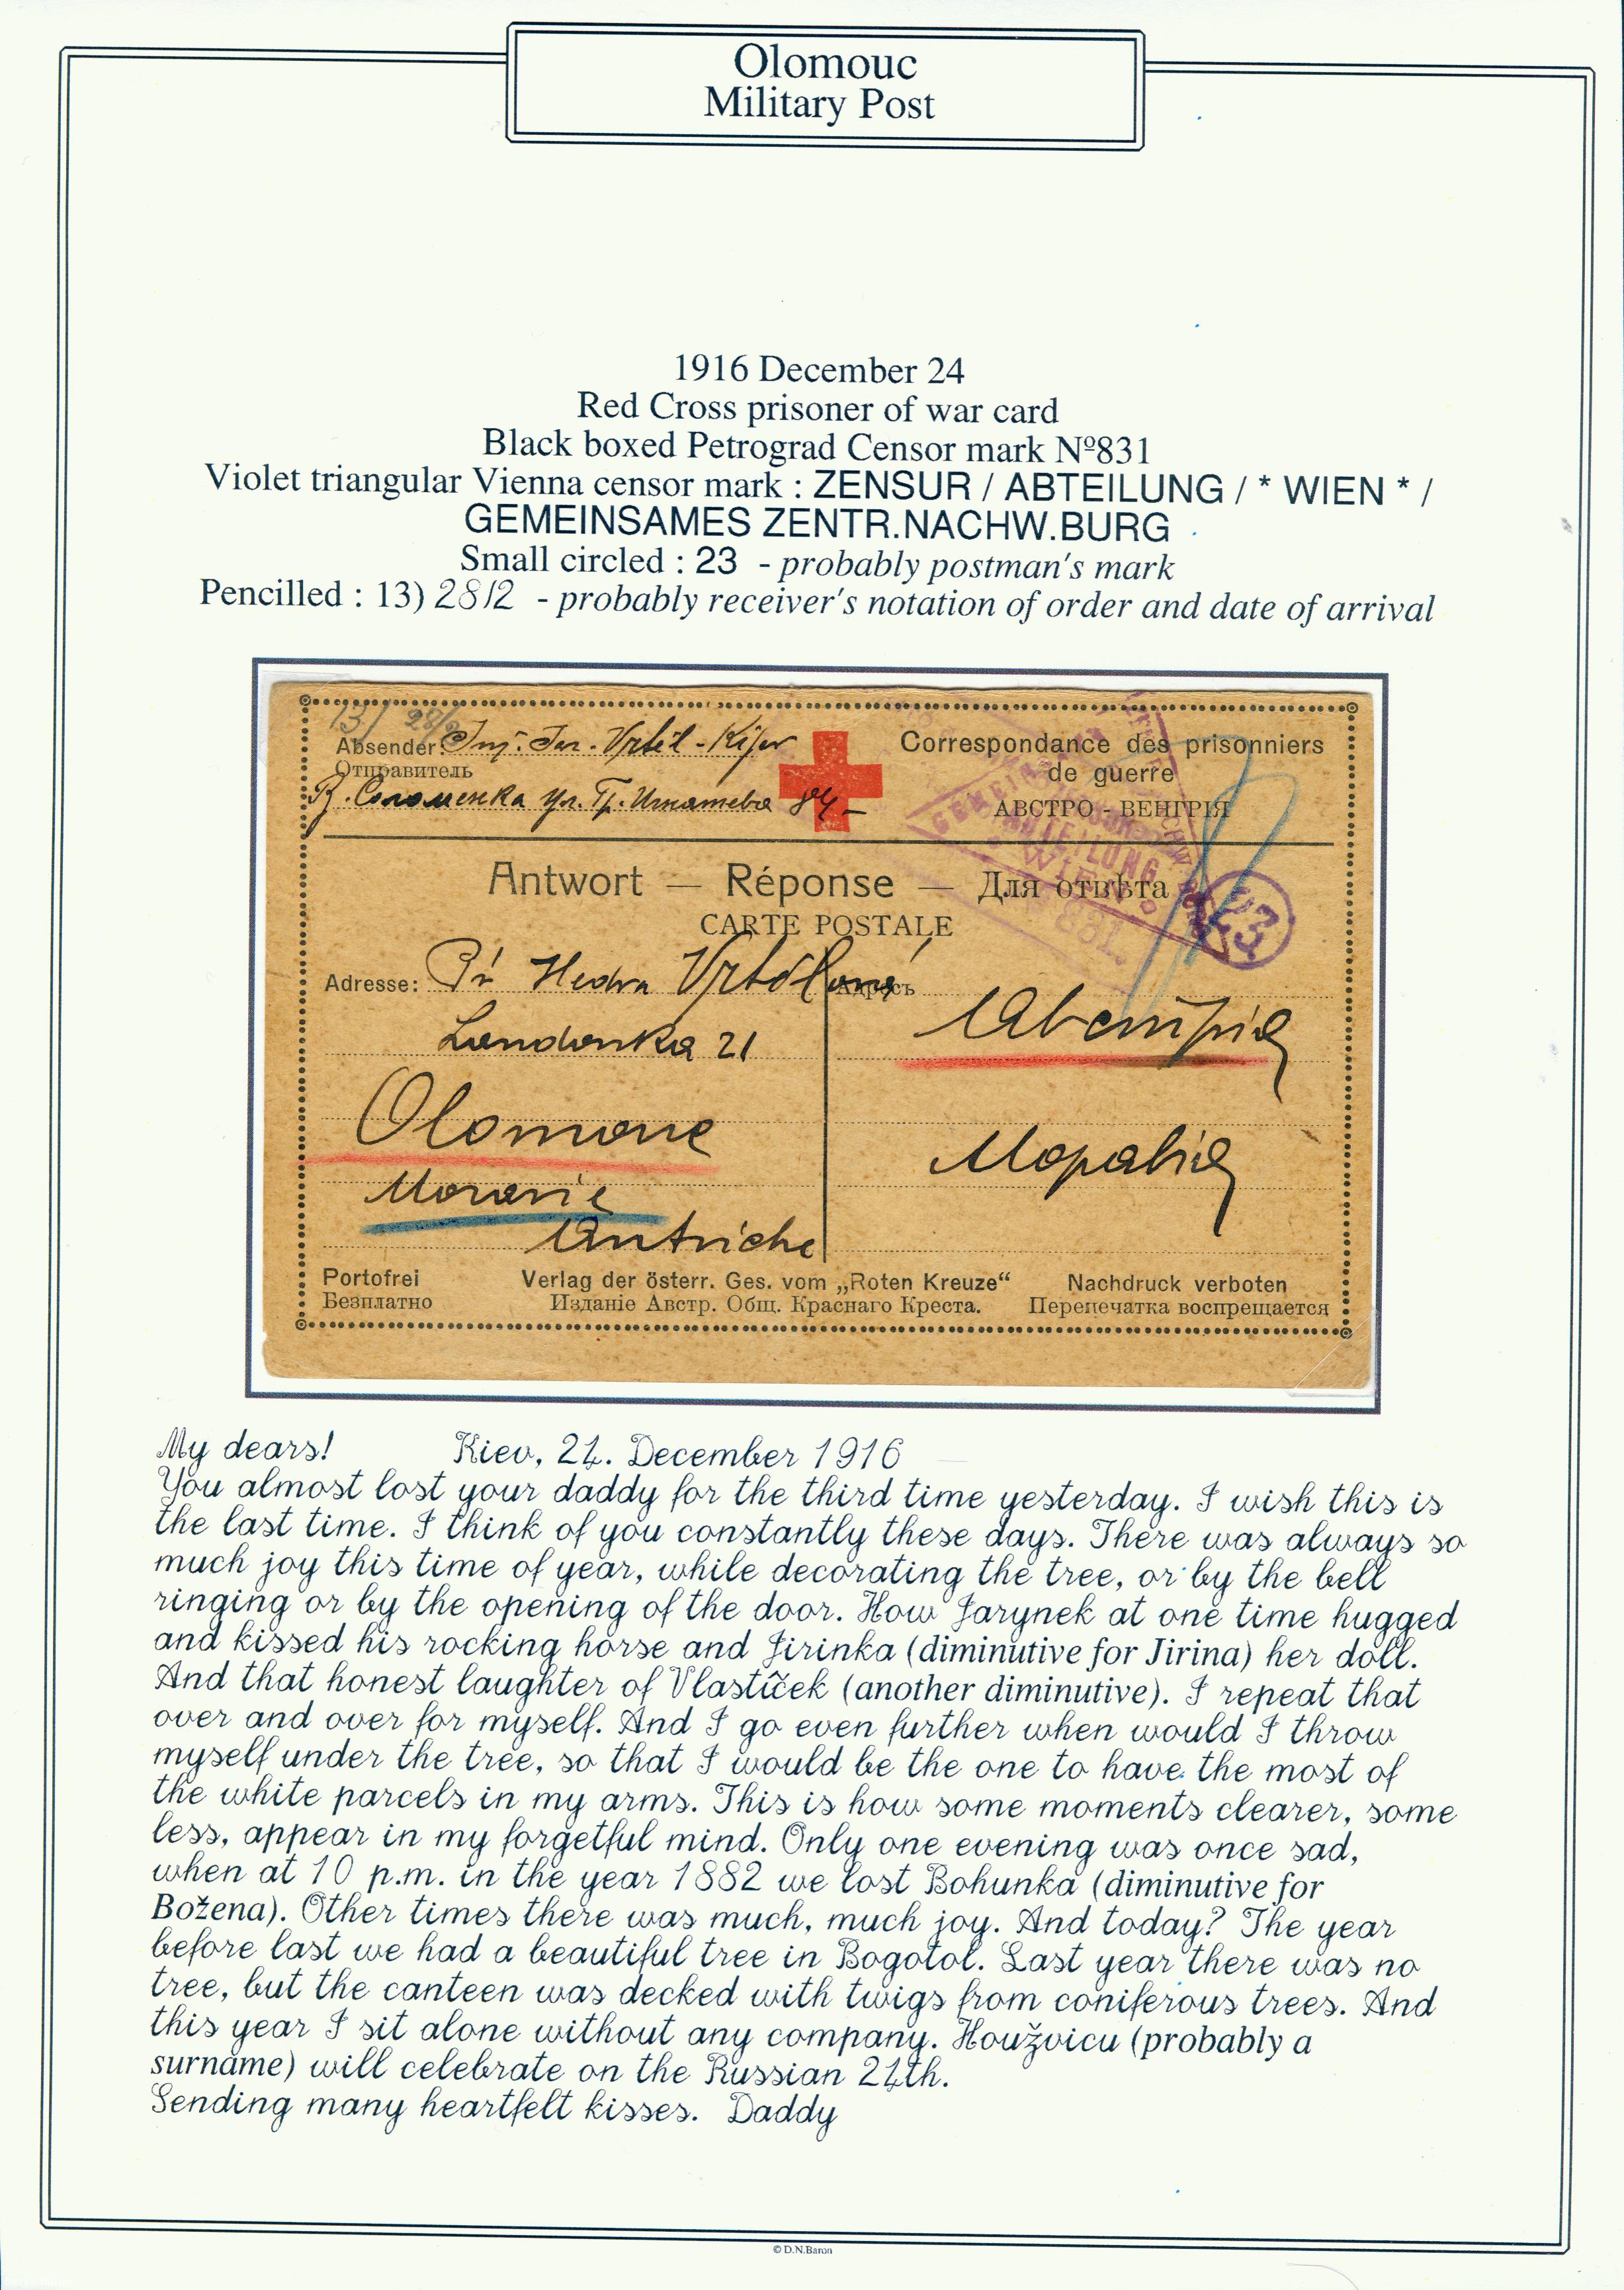 Olomouc
Military Post
1916 December 24
Red Cross prisoner of war card
Black boxed Petrograd Censor mark Nº831
Violet triangular Vienna censor mark : ZENSUR / ABTEILUNG / * WIEN * /
GEMEINSAMES ZENTR.NACHW.BURG
Small circled : 23 - probably postman's mark
Pencilled : 13) 28/2 - probably receiver's notation of order and date of arrival
13) 28/2
Absender: Inž. Jar. Vrběl - Kijev
Отправитель
Соломенка ул. Гр. Игнатьева 84 -
Correspondance des prisonniers
de guerre
АВСТРО - ВЕНГРІЯ
ABTEILUNG
WIEN
831.
23
Antwort — Réponse — Для отвѣта
CARTE POSTALE
Adresse: Pí Hedva Vrbělová
Адресъ
Londonka 21
Австрія
Olomouc
Моравія
Moravie
Autriche
Portofrei
Verlag der österr. Ges. vom „Roten Kreuze“
Nachdruck verboten
Безплатно
Изданіе Австр. Общ. Краснаго Креста.
Перепечатка воспрещается
My dears! Kiev, 24. December 1916
You almost lost your daddy for the third time yesterday. I wish this is
the last time. I think of you constantly these days. There was always so
much joy this time of year, while decorating the tree, or by the bell
ringing or by the opening of the door. How Jarynek at one time hugged
and kissed his rocking horse and Jirinka (diminutive for Jirina) her doll.
And that honest laughter of Vlastiček (another diminutive). I repeat that
over and over for myself. And I go even further when would I throw
myself under the tree, so that I would be the one to have the most of
the white parcels in my arms. This is how some moments clearer, some
less, appear in my forgetful mind. Only one evening was once sad,
when at 10 p.m. in the year 1882 we lost Bohunka (diminutive for
Božena). Other times there was much, much joy. And today? The year
before last we had a beautiful tree in Bogotol. Last year there was no
tree, but the canteen was decked with twigs from coniferous trees. And
this year I sit alone without any company. Houžvicu (probably a
surname) will celebrate on the Russian 24th.
Sending many heartfelt kisses. Daddy
© D.N.Baron